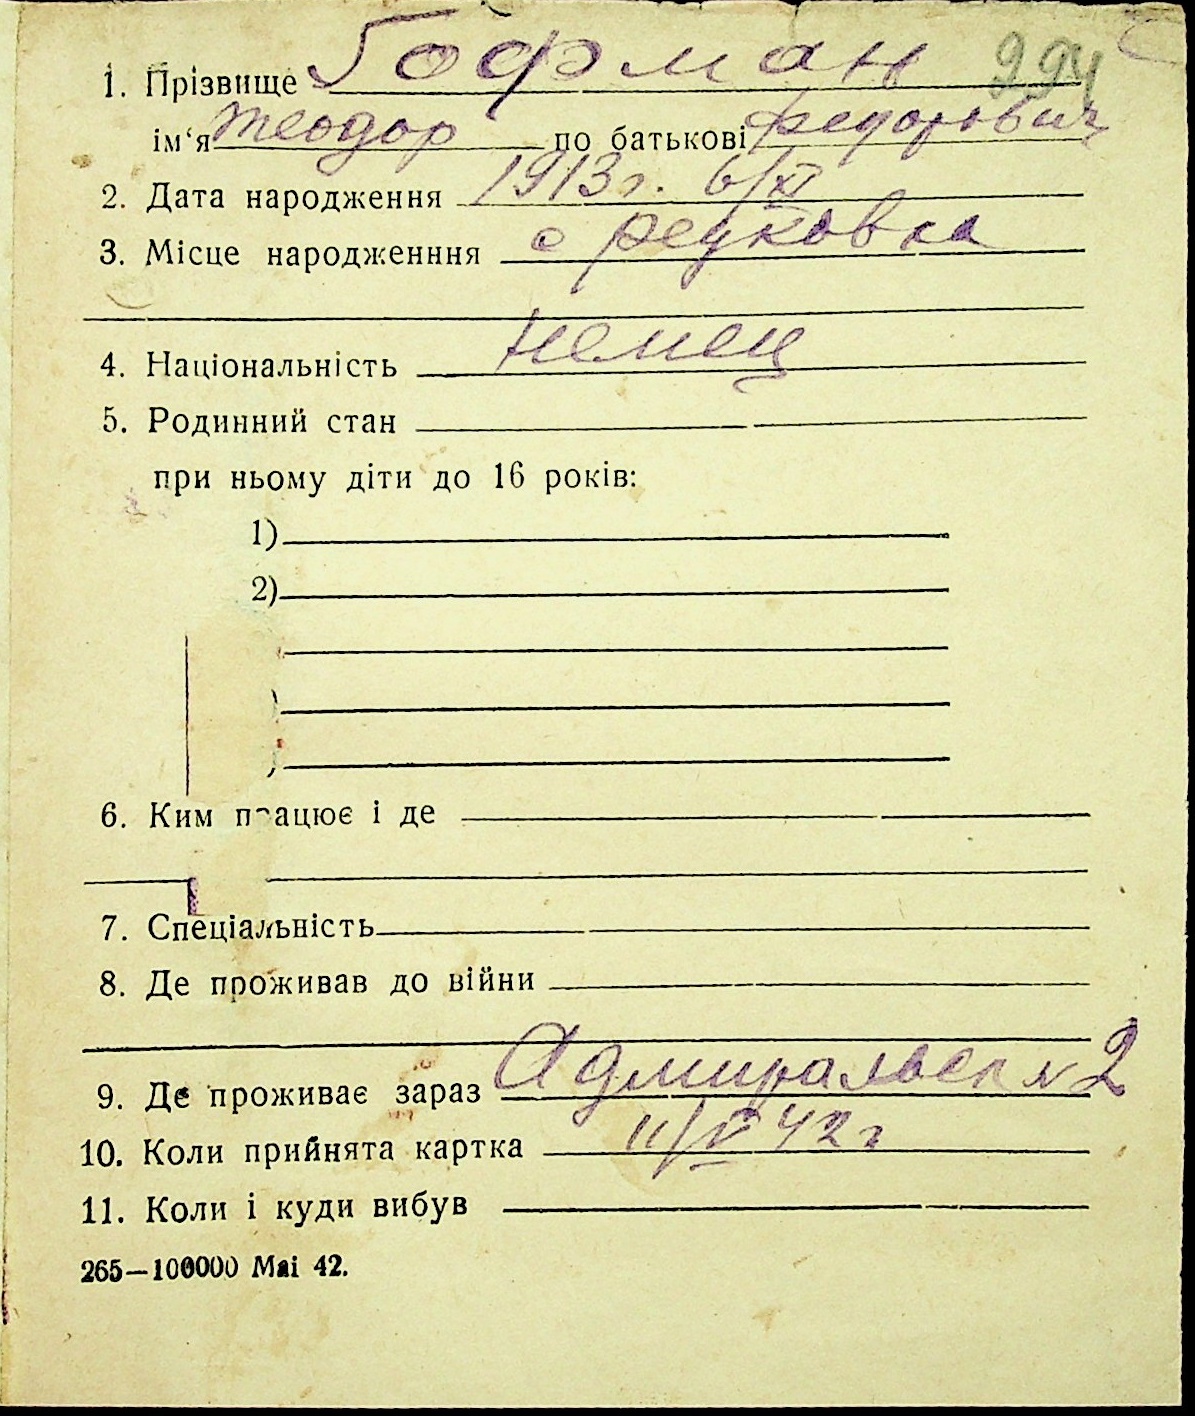 994
1. Прізвище Гофман
ім‘я Теодор по батькові Федорович
2. Дата народження 1913 г. 6/XI
3. Місце народженння с Редковка
4. Національність немец
5. Родинний стан
при ньому діти до 16 років:
1)
2)
)
)
6. Ким працює і де
7. Спеціальність
8. Де проживав до війни
9. Де проживає зараз Адмиральск № 2
10. Коли прийнята картка 11/V 42 г
11. Коли і куди вибув
265—100000 Mai 42.